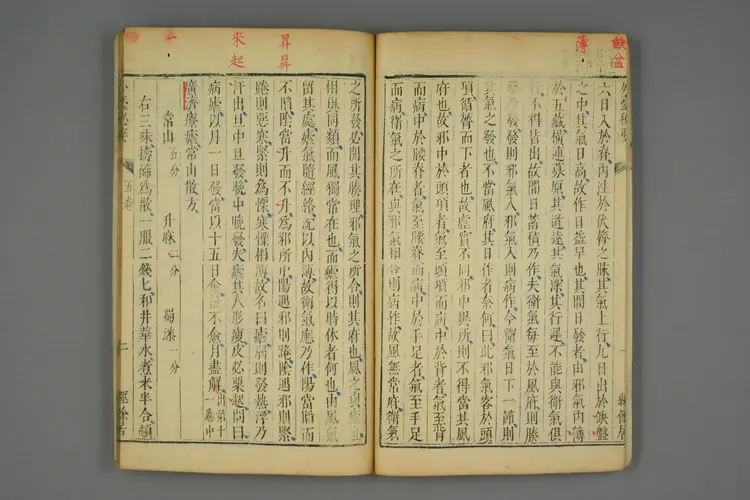 缺盆
薄
外臺秘要
六日入於脊內注於伏膂之脉其氣上行九日出於缺盤
之中其氣日高故作日益早也其間日發者由邪氣內簿
於五藏橫連募原其道遠其氣深其行遲不能與衛氣俱
行不得皆出故間日蓄積乃作夫衛氣每至於風府則腠
理乃發發則邪氣入邪氣入則病作今衛氣日下一節則
其氣之發也不當風府其日作者奈何曰此邪氣客於頭
項循膂而下者也故虛實不同邪中異所則不得當其風
府也故邪中於頭項者氣至頭項而病中於背者氣至背
而病中於腰脊者氣至腰脊而病中於手足者氣至手足
而病衛氣之所在與邪氣相合則病作故風無常府衛氣
昇昇
來起
之所發必開其腠理邪氣之所合則其府也風之與瘧也
相與同類而風獨常在也而瘧得以時休者何也由風氣
留其處瘧氣隨經絡沉以內薄故衛氣應乃作陽當陷而
不陷陰當升而不升為邪所中陽遇邪則踡陰遇邪則緊
踡則惡寒緊則為慄寒慄相薄故名曰瘧弱則發熱浮乃
汗出旦中旦發晚中晚發夫瘧其人形瘦皮必粟起問曰
病瘧以月一日發當以十五日愈設不愈月盡解出第十一卷中
廣濟療瘧常山散方
常山五分 升麻二分 蜀漆一分
右三味擣篩為散一服二錢匕和井華水煮米半合頓
五卷 二 經餘居